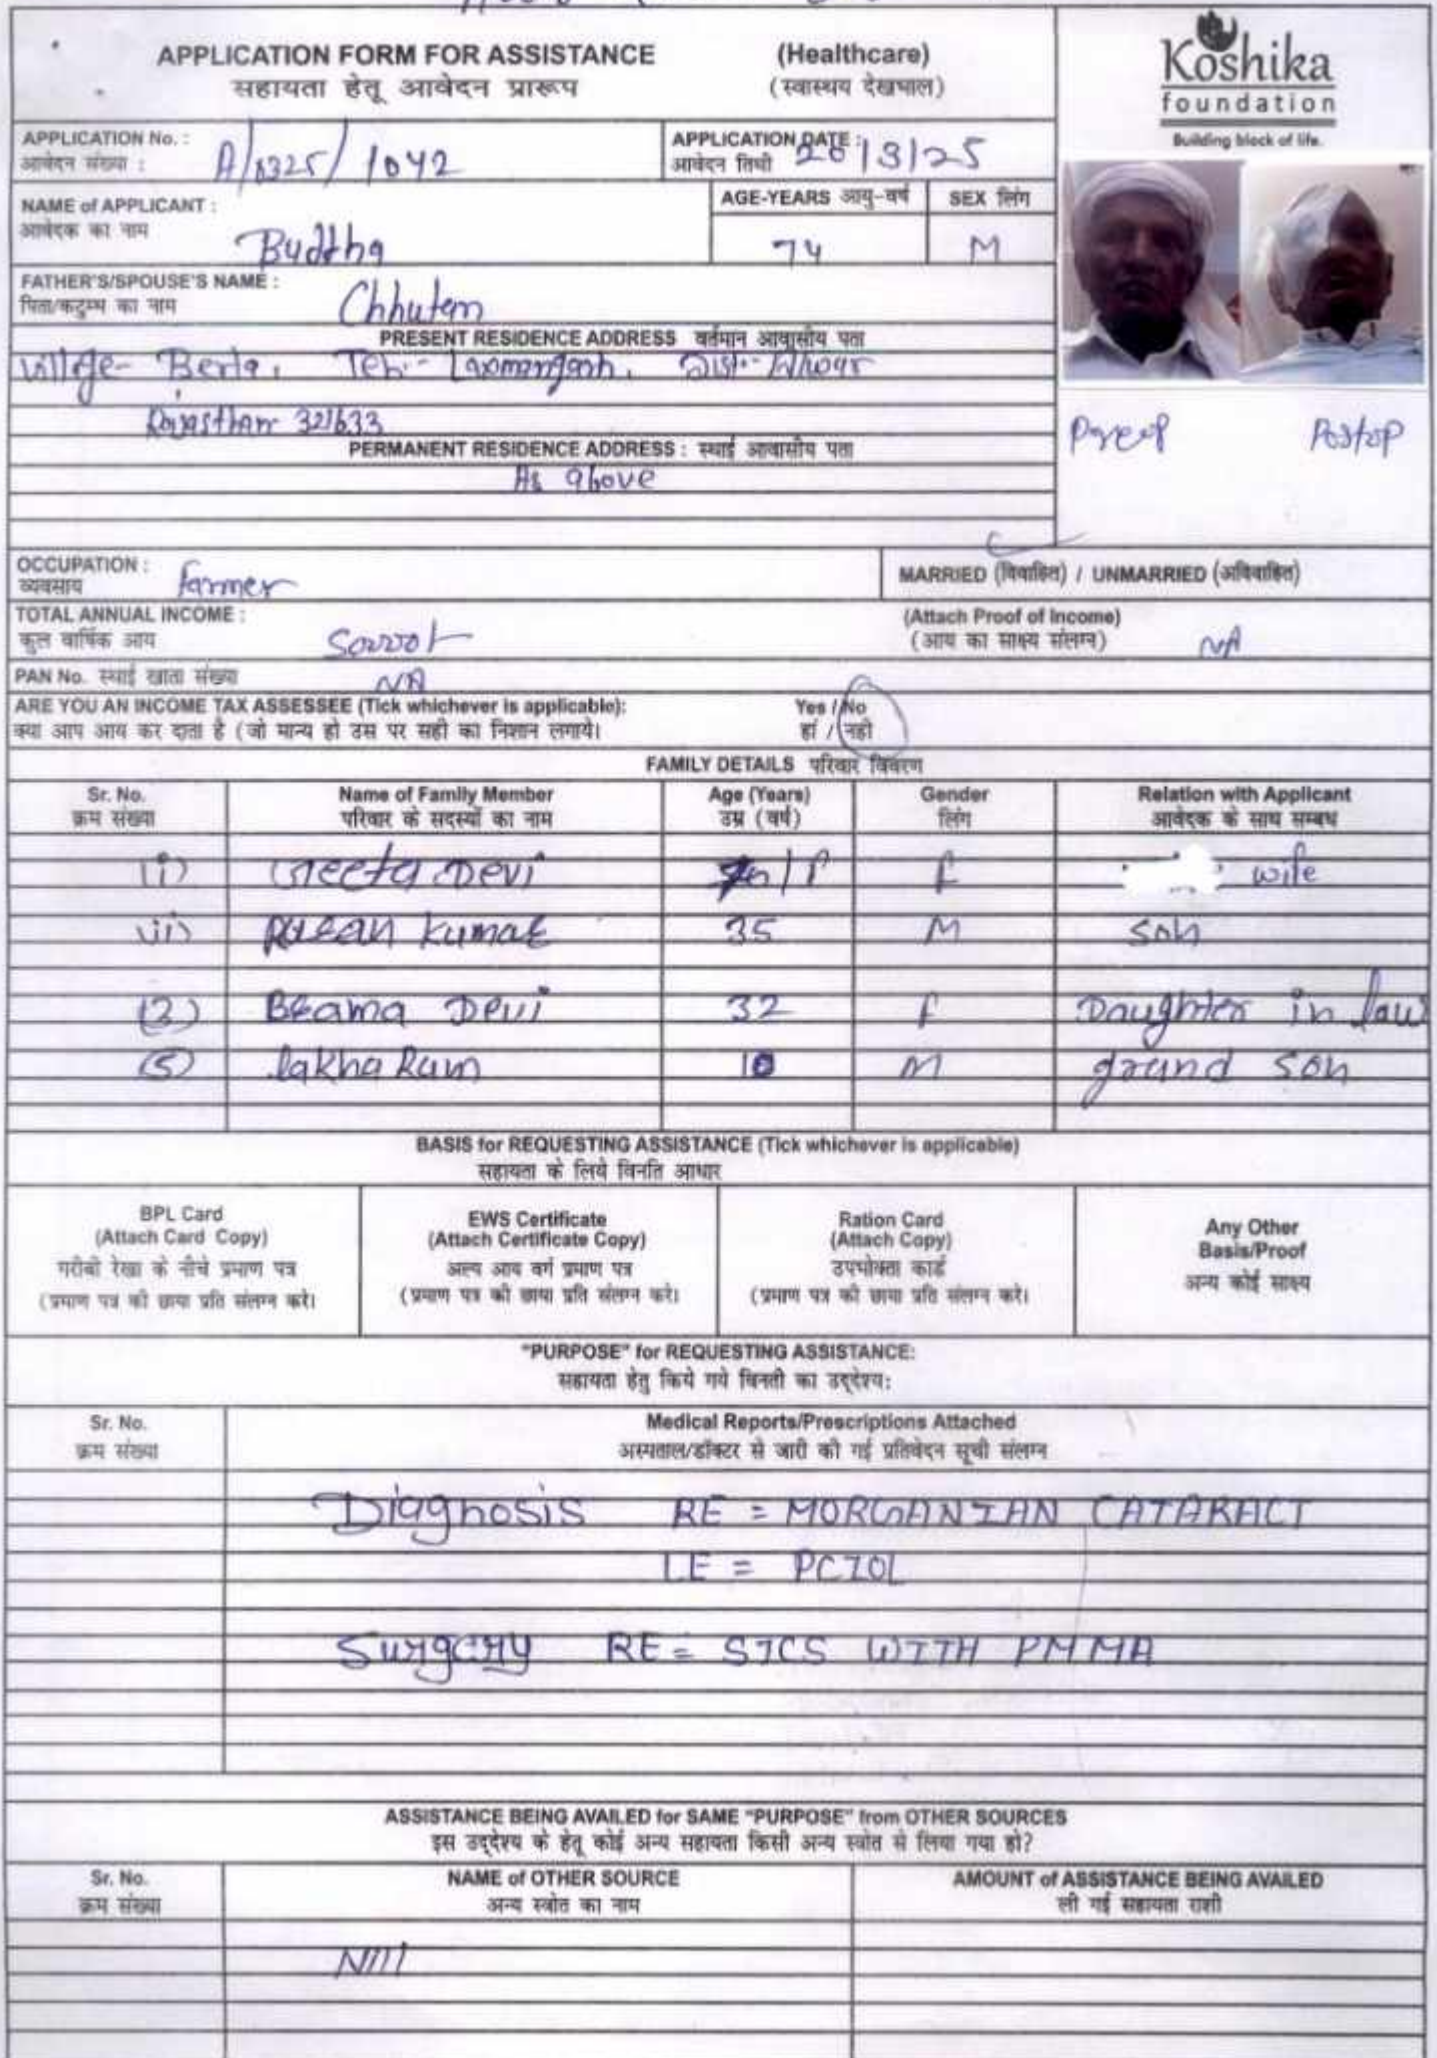 APPLICATION FORM FOR ASSISTANCE (Healthcare)
सहायता हेतू आवेदन प्रारूप (स्वास्थय देखभाल)
Koshika
foundation
Building block of life.
APPLICATION No. : A/0325/1042
आवेदन संख्या :
APPLICATION DATE : 20/3/25
आवेदन तिथी
NAME of APPLICANT :
आवेदक का नाम Buddha
AGE-YEARS आयु-वर्ष 74
SEX लिंग M
FATHER'S/SPOUSE'S NAME :
पिता/कटुम्ब का नाम Chhutan
PRESENT RESIDENCE ADDRESS वर्तमान आवासीय पता
Village- Berla, Teh:- Laxmangarh, Dist:- Alwar
Rajasthan 321633
PERMANENT RESIDENCE ADDRESS : स्थाई आवासीय पता
As above
Preop Postop
OCCUPATION :
व्यवसाय Farmer
MARRIED (विवाहित) / UNMARRIED (अविवाहित)
TOTAL ANNUAL INCOME :
कुल वार्षिक आय
(Attach Proof of Income)
(आय का साक्ष्य संलग्न) NA
PAN No. स्थाई खाता संख्या NA
ARE YOU AN INCOME TAX ASSESSEE (Tick whichever is applicable): Yes / No
क्या आप आय कर दाता है (जो मान्य हो उस पर सही का निशान लगाये। हां / नही
FAMILY DETAILS परिवार विवरण
Sr. No. Name of Family Member Age (Years) Gender Relation with Applicant
क्रम संख्या परिवार के सदस्यों का नाम उम्र (वर्ष) लिंग आवेदक के साथ सम्बध
(i) Geeta Devi F wife
(ii) Kumar 35 M Son
(3) Devi 32 F Daughter in law
(5) lakha Ram 10 M grand son
BASIS for REQUESTING ASSISTANCE (Tick whichever is applicable)
सहायता के लिये विनति आधार
BPL Card
(Attach Card Copy)
गरीबी रेखा के नीचे प्रमाण पत्र
(प्रमाण पत्र की छाया प्रति संलग्न करे।
EWS Certificate
(Attach Certificate Copy)
अल्प आय वर्ग प्रमाण पत्र
(प्रमाण पत्र की छाया प्रति संलग्न करे।
Ration Card
(Attach Copy)
उपभोक्ता कार्ड
(प्रमाण पत्र की छाया प्रति संलग्न करे।
Any Other
Basis/Proof
अन्य कोई साक्ष्य
"PURPOSE" for REQUESTING ASSISTANCE:
सहायता हेतु किये गये विनती का उद्देश्य:
Sr. No. Medical Reports/Prescriptions Attached
क्रम संख्या अस्पताल/डॉक्टर से जारी की गई प्रतिवेदन सूची संलग्न
Diagnosis RE = MORGANIAN CATARACT
LE = PCIOL
Surgery RE = SICS WITH PMMA
ASSISTANCE BEING AVAILED for SAME "PURPOSE" from OTHER SOURCES
इस उद्देश्य के हेतू कोई अन्य सहायता किसी अन्य स्त्रोत से लिया गया हो?
Sr. No. NAME of OTHER SOURCE AMOUNT of ASSISTANCE BEING AVAILED
क्रम संख्या अन्य स्त्रोत का नाम ली गई सहायता राशी
Nill